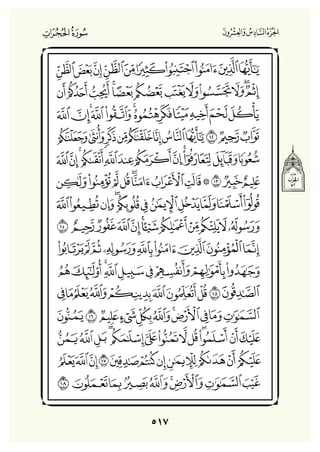 الجزء السادس والعشرون سورة الحجرات
يَٰٓأَيُّهَا ٱلَّذِينَ ءَامَنُوا۟ ٱجْتَنِبُوا۟ كَثِيرًا مِّنَ ٱلظَّنِّ إِنَّ بَعْضَ ٱلظَّنِّ
إِثْمٌ ۖ وَلَا تَجَسَّسُوا۟ وَلَا يَغْتَب بَّعْضُكُم بَعْضًا ۚ أَيُحِبُّ أَحَدُكُمْ أَن
يَأْكُلَ لَحْمَ أَخِيهِ مَيْتًا فَكَرِهْتُمُوهُ ۚ وَٱتَّقُوا۟ ٱللَّهَ ۚ إِنَّ ٱللَّهَ
تَوَّابٌ رَّحِيمٌ ١٢ يَٰٓأَيُّهَا ٱلنَّاسُ إِنَّا خَلَقْنَٰكُم مِّن ذَكَرٍ وَأُنثَىٰ وَجَعَلْنَٰكُمْ
شُعُوبًا وَقَبَآئِلَ لِتَعَارَفُوٓا۟ ۚ إِنَّ أَكْرَمَكُمْ عِندَ ٱللَّهِ أَتْقَىٰكُمْ ۚ إِنَّ ٱللَّهَ
عَلِيمٌ خَبِيرٌ ١٣ ۞ قَالَتِ ٱلْأَعْرَابُ ءَامَنَّا ۖ قُل لَّمْ تُؤْمِنُوا۟ وَلَٰكِن
قُولُوٓا۟ أَسْلَمْنَا وَلَمَّا يَدْخُلِ ٱلْإِيمَٰنُ فِى قُلُوبِكُمْ ۖ وَإِن تُطِيعُوا۟ ٱللَّهَ
وَرَسُولَهُۥ لَا يَلِتْكُم مِّنْ أَعْمَٰلِكُمْ شَيْـًٔا ۚ إِنَّ ٱللَّهَ غَفُورٌ رَّحِيمٌ ١٤
إِنَّمَا ٱلْمُؤْمِنُونَ ٱلَّذِينَ ءَامَنُوا۟ بِٱللَّهِ وَرَسُولِهِۦ ثُمَّ لَمْ يَرْتَابُوا۟
وَجَٰهَدُوا۟ بِأَمْوَٰلِهِمْ وَأَنفُسِهِمْ فِى سَبِيلِ ٱللَّهِ ۚ أُو۟لَٰٓئِكَ هُمُ
ٱلصَّٰدِقُونَ ١٥ قُلْ أَتُعَلِّمُونَ ٱللَّهَ بِدِينِكُمْ وَٱللَّهُ يَعْلَمُ مَا فِى
ٱلسَّمَٰوَٰتِ وَمَا فِى ٱلْأَرْضِ ۚ وَٱللَّهُ بِكُلِّ شَىْءٍ عَلِيمٌ ١٦ يَمُنُّونَ
عَلَيْكَ أَنْ أَسْلَمُوا۟ ۖ قُل لَّا تَمُنُّوا۟ عَلَىَّ إِسْلَٰمَكُم ۖ بَلِ ٱللَّهُ يَمُنُّ
عَلَيْكُمْ أَنْ هَدَىٰكُمْ لِلْإِيمَٰنِ إِن كُنتُمْ صَٰدِقِينَ ١٧ إِنَّ ٱللَّهَ يَعْلَمُ
غَيْبَ ٱلسَّمَٰوَٰتِ وَٱلْأَرْضِ ۚ وَٱللَّهُ بَصِيرٌۢ بِمَا تَعْمَلُونَ ١٨
٥١٧